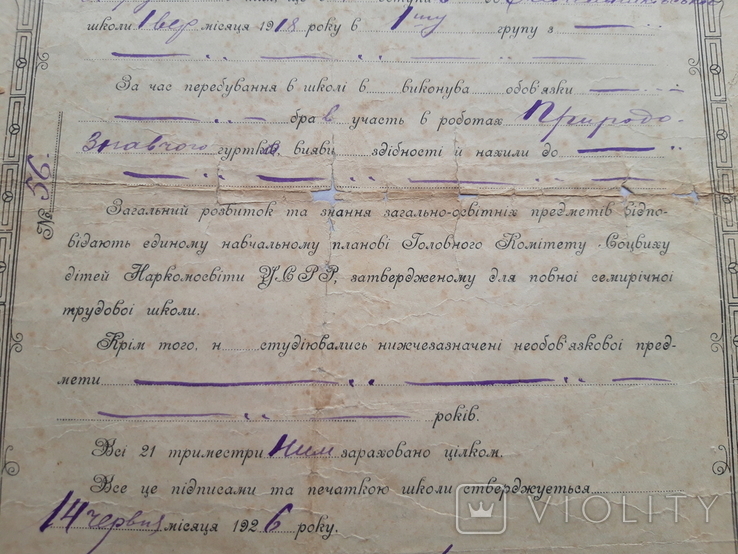 школи 1 вер місяця 1918 року в 1 шу групу з
За час перебування в школі в виконува обов'язки
брав участь в роботах Природо-
знавчого гуртків, вияви здібності й нахили до
№ 56.
Загальний розвиток та знання загально-освітніх предметів відпо-
відають единому навчальному планові Головного Комітету Соцвиху
дітей Наркомосвіти УСРР, затвердженому для повної семирічної
трудової школи.
Крім того, н студіювались нижчезазначені необов'язкової пред-
мети
років.
Всі 21 триместри ним зараховано цілком.
Все це підписами та печаткою школи стверджується
14 червня місяця 1926 року.
VIOLITY